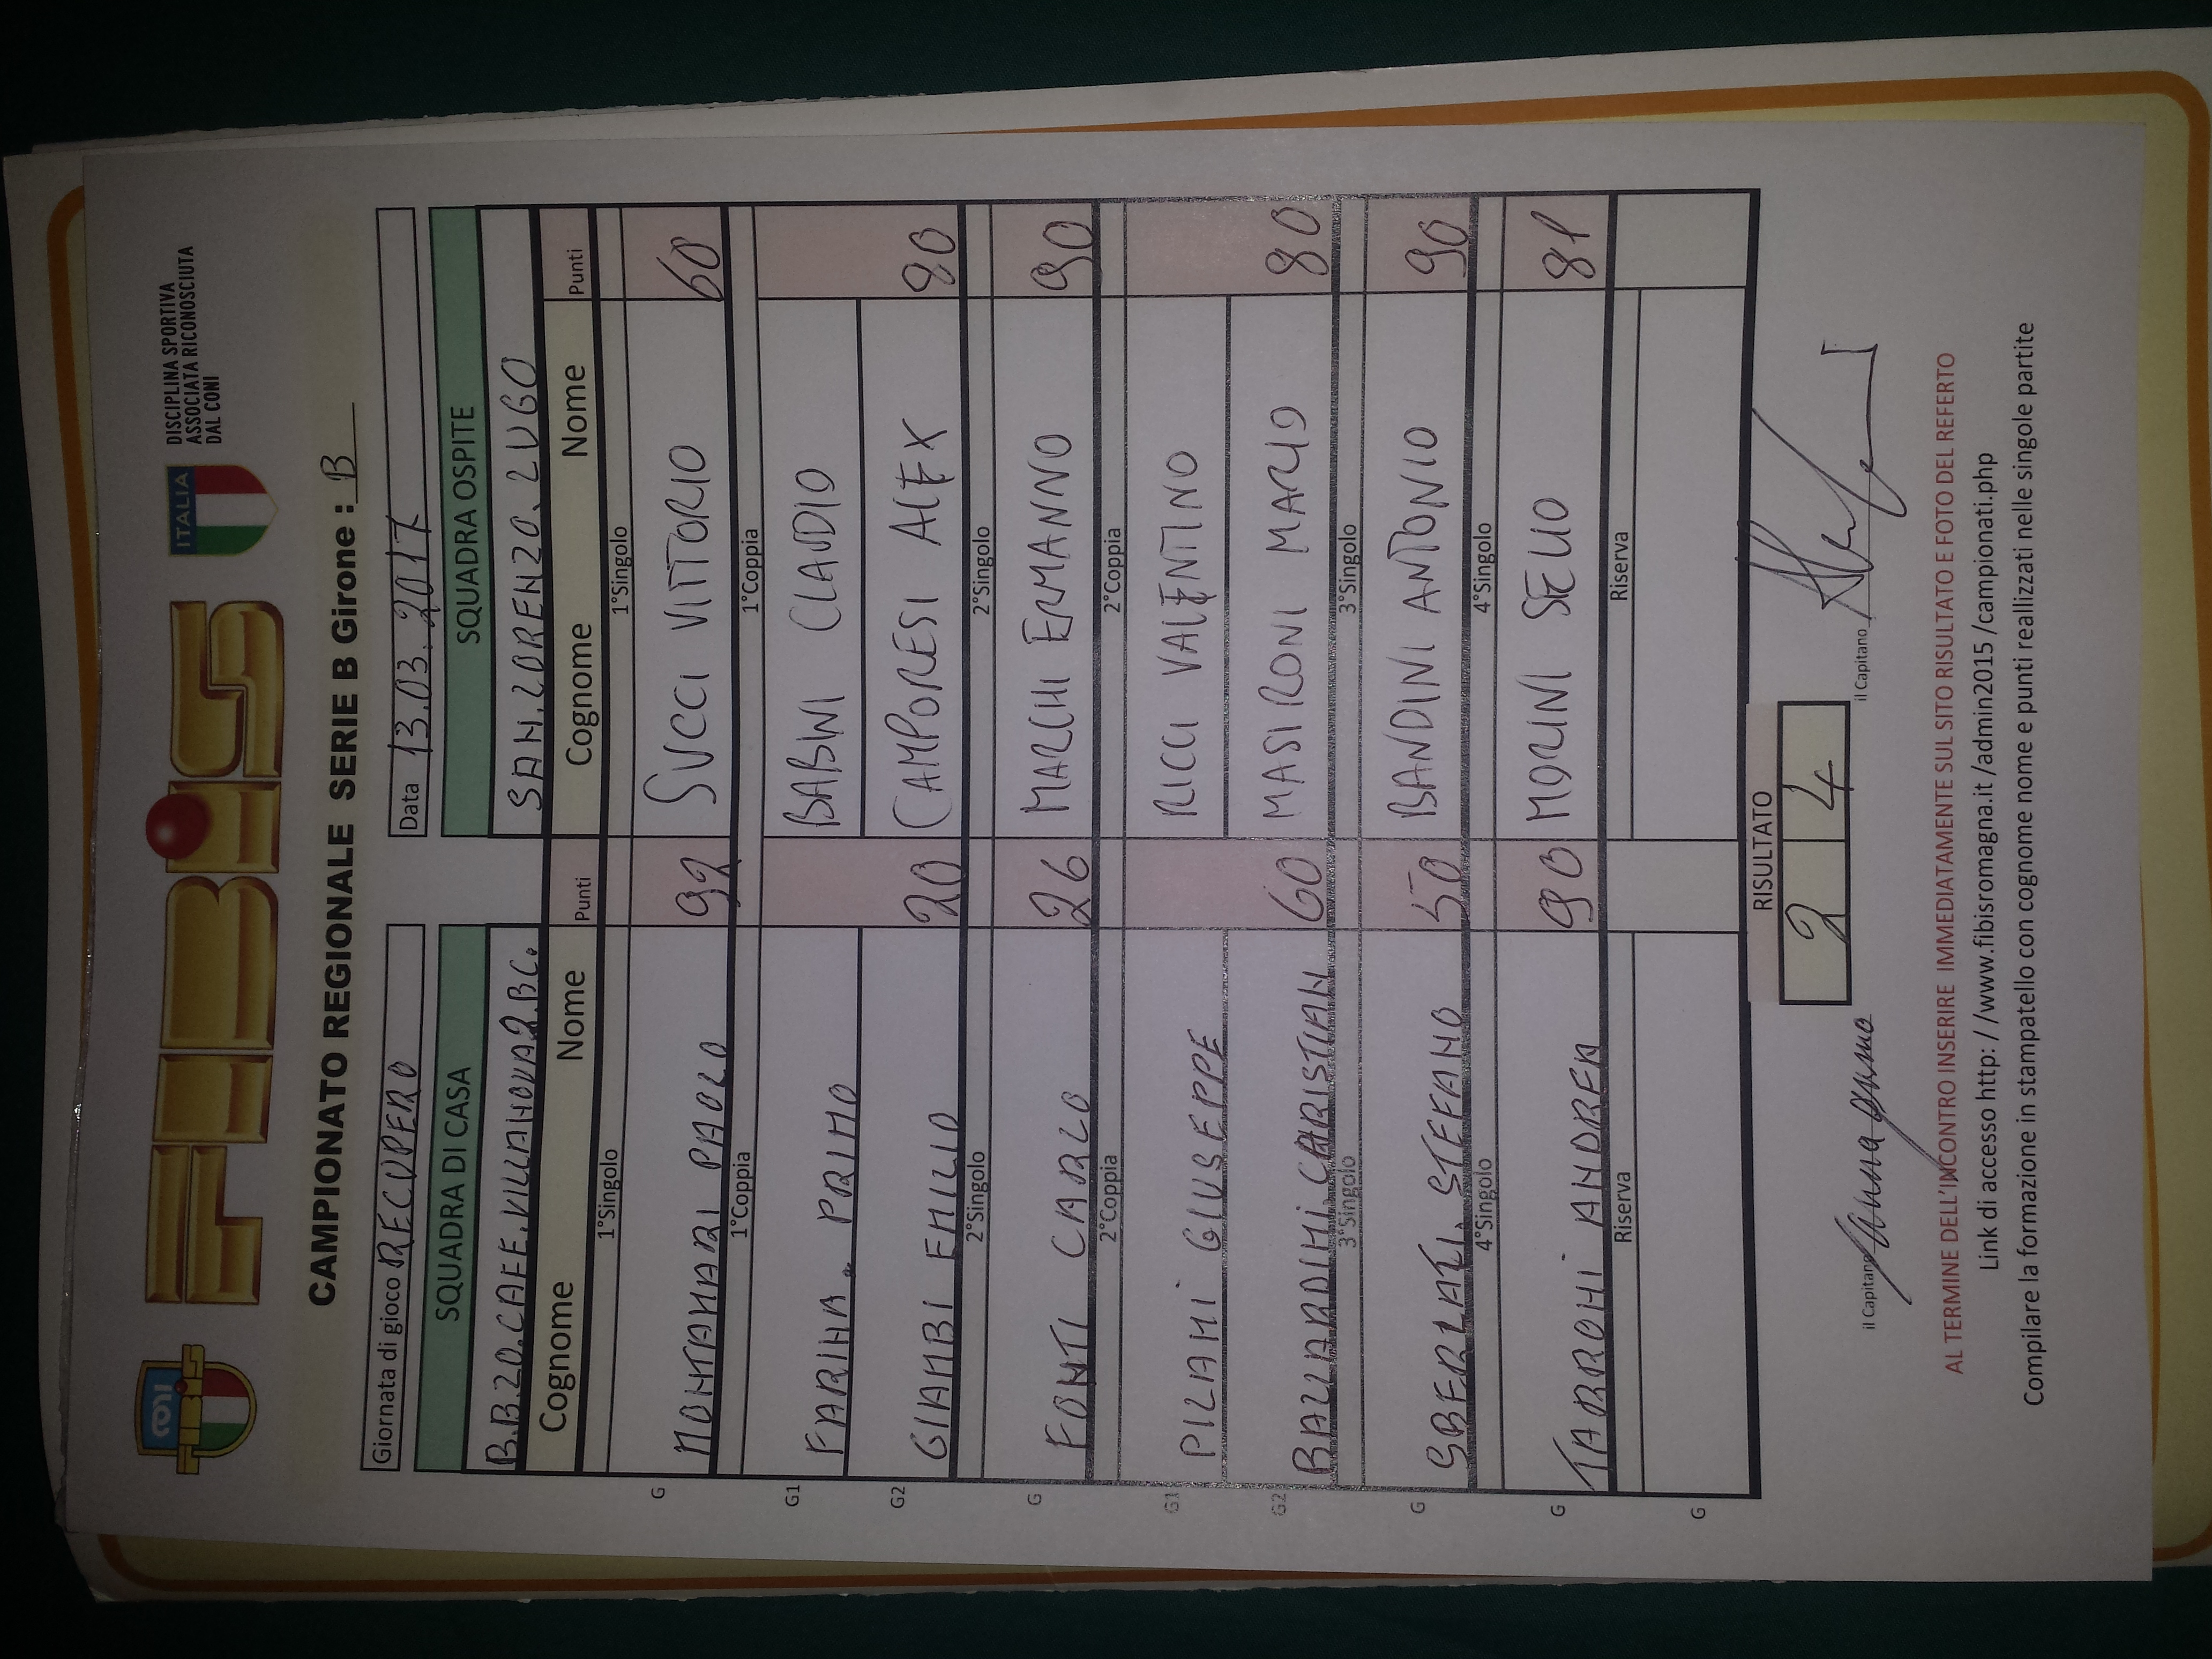 FIBiS
ITALIA
DISCIPLINA SPORTIVA
ASSOCIATA RICONOSCIUTA
DAL CONI
FIBiS
CAMPIONATO REGIONALE SERIE B Girone : B
Giornata di gioco RECUPERO Data 13.03.2017
SQUADRA DI CASA SQUADRA OSPITE
B.B.20.CAFE.VILLANOVA2.BC. SAN.LORENZO.LUGO
Cognome Nome Punti Cognome Nome Punti
1°Singolo 1°Singolo
G MONTANARI PAOLO 92 SUCCI VITTORIO 60
1°Coppia 1°Coppia
G1 FARINA. PRIMO BABINI CLAUDIO
G2 GIAMBI EMILIO 20 CAMPORESI ALEX 80
2°Singolo 2°Singolo
G FONTI CARLO 26 MARCHI ERMANNO 90
2°Coppia 2°Coppia
G1 PILANI GIUSEPPE RICCI VALENTINO
G2 BALLARDINI.CARISTIAN 60 MASIRONI MARIO 80
3°Singolo 3°Singolo
G SBERLATI. STEFANO 50 BANDINI ANTONIO 90
4°Singolo 4°Singolo
G TABRONI ANDREA 90 MORINI SELIO 81
Riserva Riserva
G
RISULTATO
2 4
il Capitano il Capitano
AL TERMINE DELL'INCONTRO INSERIRE IMMEDIATAMENTE SUL SITO RISULTATO E FOTO DEL REFERTO
Link di accesso http: / /www.fibisromagna.it /admin2015 /campionati.php
Compilare la formazione in stampatello con cognome nome e punti reallizzati nelle singole partite